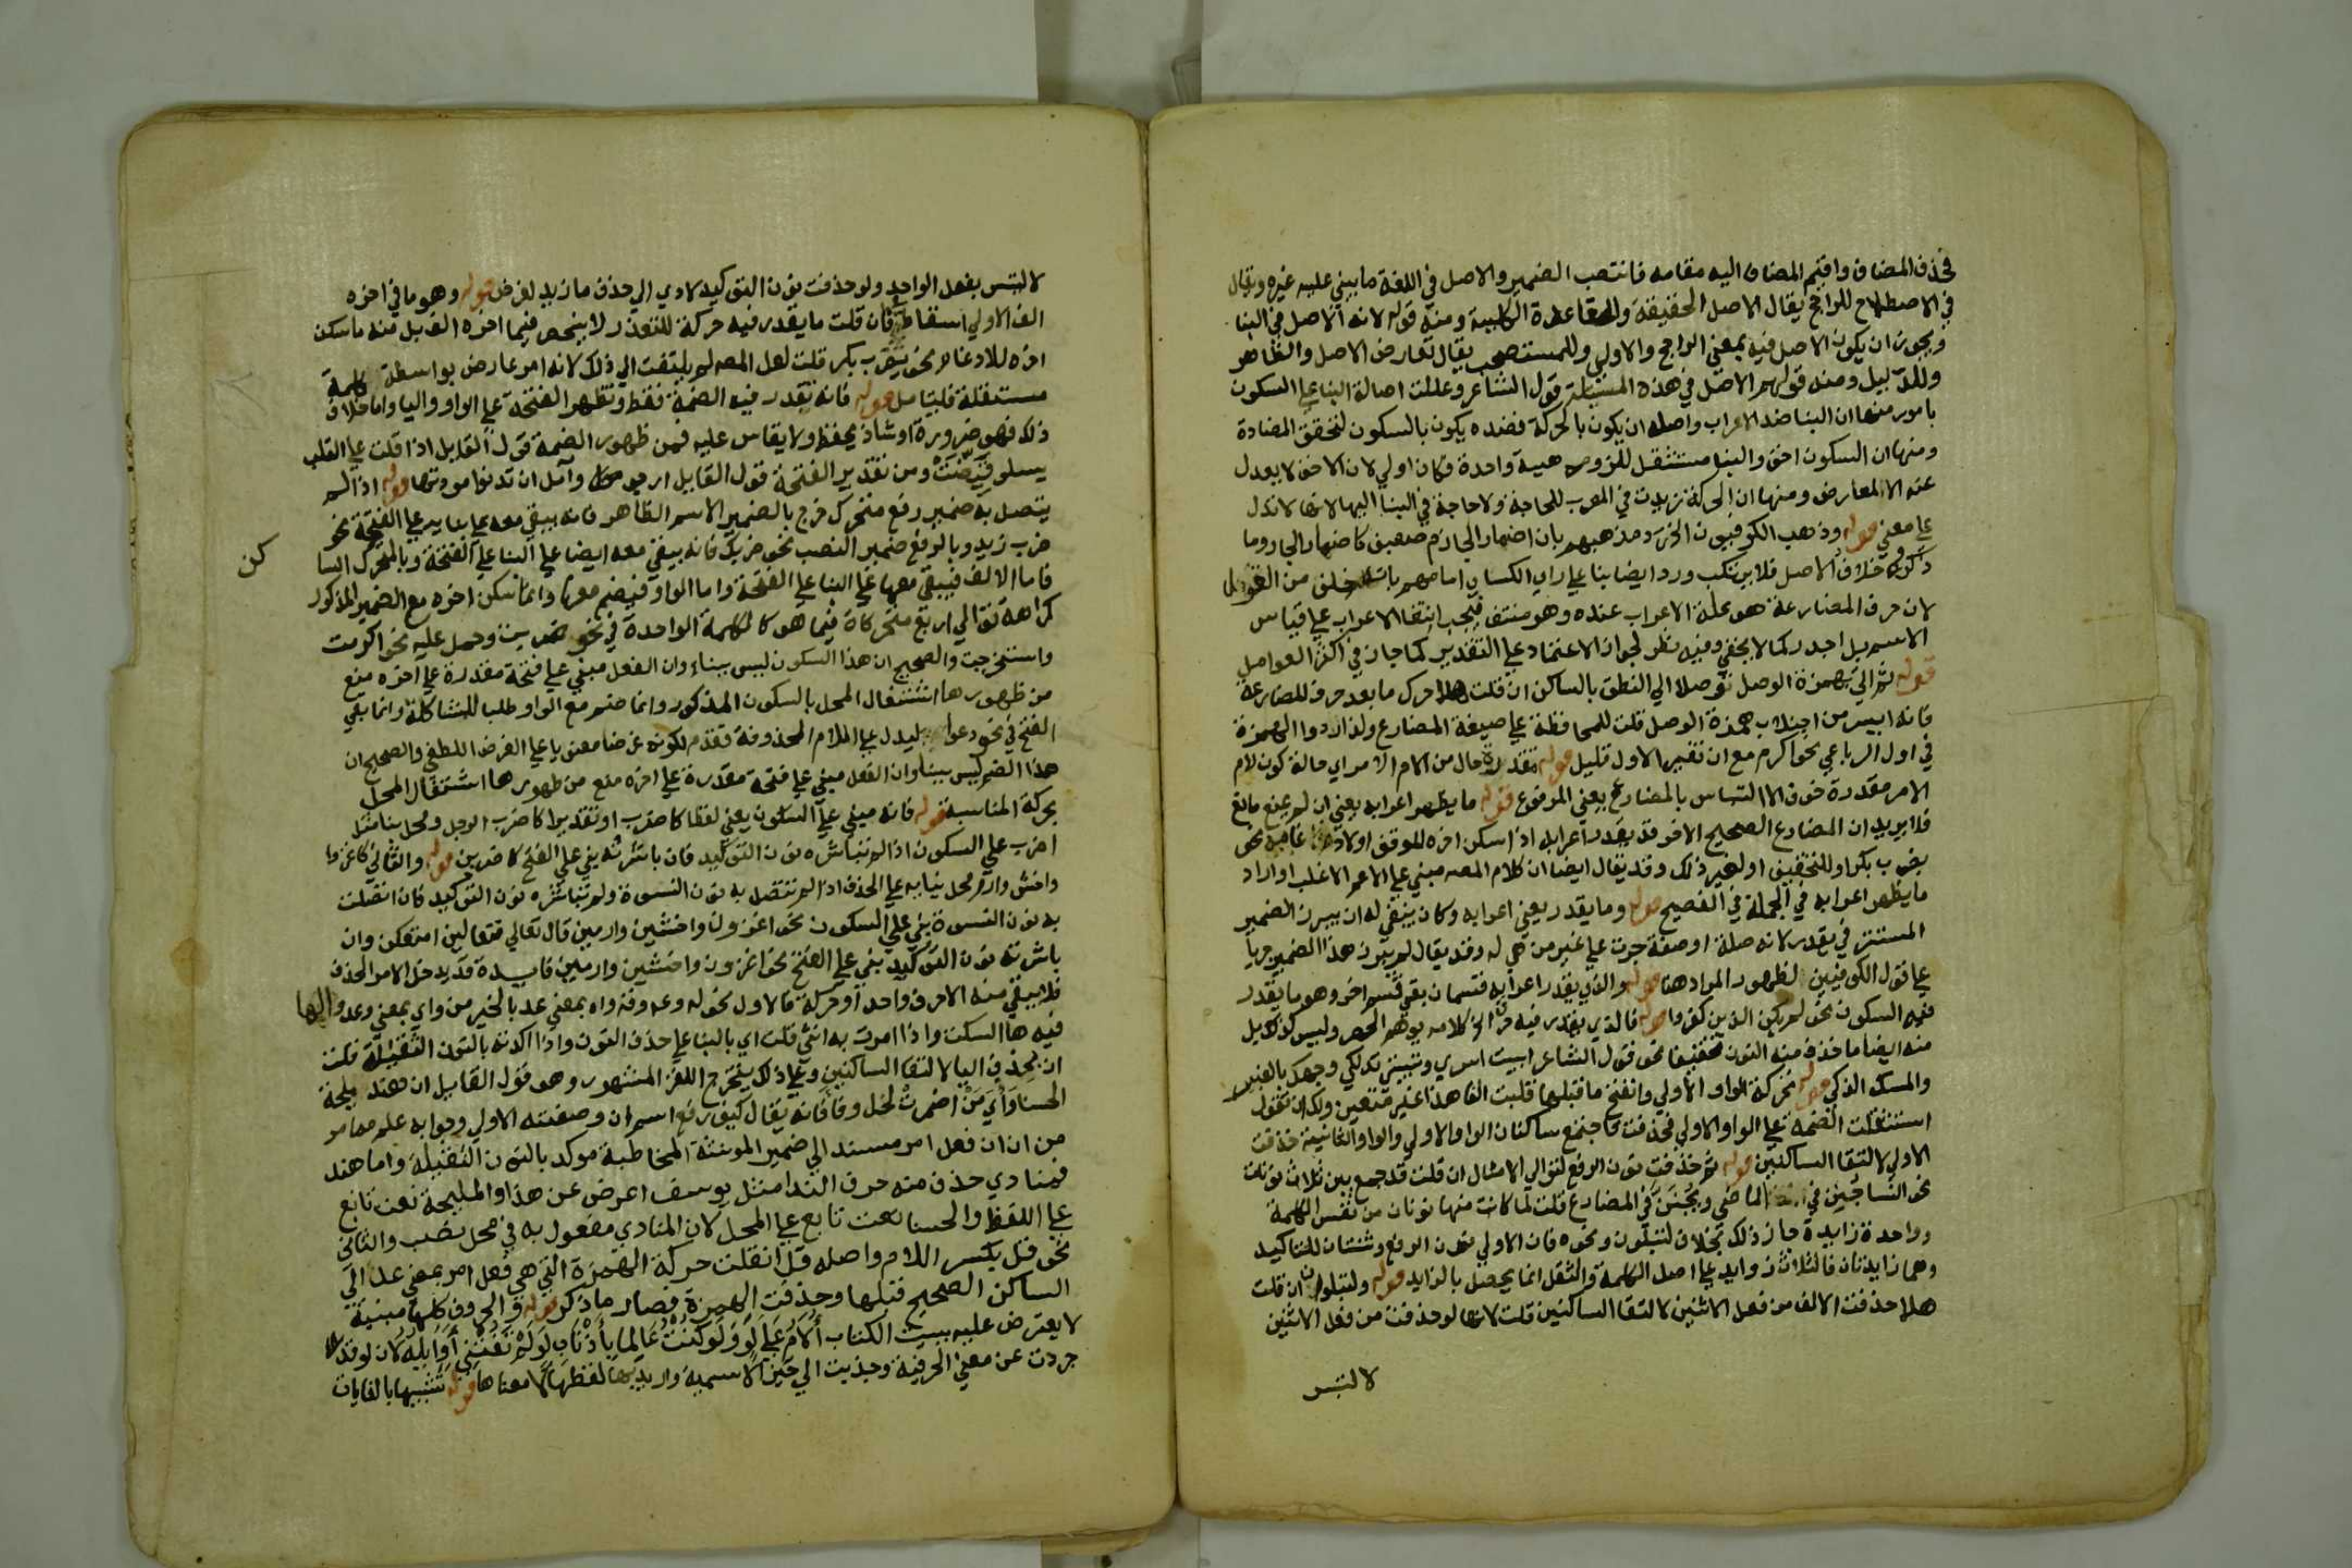 فحذف المضاف واقيم المضاف اليه مقامه فانتصب الضمير والاصل في اللغة ما يبني عليه غيره ويقال
في الاصطلاح للراجح يقال الاصل الحقيقة وللقاعدة الكلية ومنه قوله لانه الاصل في البنا
ويجوز ان يكون الاصل فيه بمعني الراجح والاولي وللمستصحب يقال تعارض الاصل والظاهر
وللدليل ومنه قولهم الاصل في هذه المسئلة قول الشاعر وعللت اصالة البنا علي السكون
بامور منها ان البنا ضد الاعراب واصله ان يكون بالحركة فضده يكون بالسكون لتحقق المضادة
ومنها ان السكون اخف والبنا مستثقل للزومه هيية واحدة فكان اولي لان الاخف لا يعدل
عنه الا لمعارض ومنها ان الحركة زيدت في المعرب للحاجة ولا حاجة في البنا اليها لانها لا تدل
علي معني قوله وذهب الكوفيون الخ رد مذهبهم بان اضمار الجازم ضعيف كاضمار الجار وما
ذكروه خلاف الاصل فلا يرتكب ورد ايضا بنا علي راي الكساي امامهم من القول
لان حرف المضارعة هو علة الاعراب عنده وهو منتف فيجب انتفا الاعراب علي قياس
الاسم بل اجدر كما لا يخفي وفيه نظر لجواز الاعتماد علي التقدير كما جاز في اكثر العوامل
قوله ثم اتي بهمزة الوصل توصلا الي النطق بالساكن ان قلت هلا حرك ما بعد حرف المضارعة
فانه ايسر من اجتلاب همزة الوصل قلت للمحافظة علي صيغة المضارع ولذا ردوا الهمزة
في اول الرباعي نحو اكرم مع ان تغيير الاول قليل قوله مقدرة حال من لام الامر اي حالة كون لام
الامر مقدرة خوف الالتباس بالمضارع يعني المرفوع قوله ما يظهر اعرابه يعني ان لم يمنع مانع
فلا يريد ان المضارع الصحيح الاخر قد يقدر اعرابه اذا سكن اخره للوقف او لادغامه نحو
يضرب بكر او للتخفيف او لغير ذلك وقد يقال ايضا ان كلام المصـ مبني علي الاعم الاغلب او اراد
ما يظهر اعرابه في الجملة في الفصيح قوله وما يقدر يعني اعرابه وكان ينبغي له ان يبرز الضمير
المستتر في يقدر لانه صلة او صفة جرت علي غير من هي له وقد يقال لم يبرز هذا الضمير جريا
علي قول الكوفيين لظهور المراد هنا قوله والذي يقدر اعرابه قسمان بقي قسم اخر وهو ما يقدر
فيه السكون نحو لم يكن الذين كفروا قوله فالذي يقدر فيه حركة الخ كلامه يوهم الحصر وليس كذلك بل
منه ايضا ما حذف منه النون تخفيفا نحو قول الشاعر ابيت اسري وتبيتي تدلكي وجهك بالعنبر
والمسك الذكي قوله تحركت الواو الاولي وانفتح ما قبلها قلبت الفا هذا غير متعين ولك ان تقول
استثقلت الضمة علي الواو الاولي فحذفت فاجتمع ساكنان الواو الاولي والواو الثانية حذفت
الاولي لالتقا الساكنين قوله ثم حذفت نون الرفع لتوالي الامثال ان قلت قد جمع بين ثلاث نونات
نحو النسا جنن في الماضي ويجنن في المضارع قلت لما كانت منها نونان من نفس الكلمة
وواحدة زايدة جاز ذلك بخلاف لتبلون ونحوه فان الاولي نون الرفع وثنتان للتاكيد
وهما زايدتان فالثلاث زوايد علي اصل الكلمة والثقل انما يحصل بالزايد قوله ولتبلوان ان قلت
هلا حذفت الالف من فعل الاثنين لالتقا الساكنين قلت لانها لو حذفت من فعل الاثنين
لالتبس
لالتبس بفعل الواحد ولو حذفت نون التوكيد لادي الي حذف ما زيد لغرض قوله وهو ما في اخره
الف الاولي اسقاط في فان قلت ما يقدر فيه حركة للتعذر لا ينحصر فيما اخره الف بل منه ما سكن
اخره للادغام نحو يضرب بكر قلت لعل المصـ لم يلتفت الي ذلك لانه امر عارض بواسطة كلمة
مستقلة فليتامل قوله فانه تقدر فيه الضمة فقط وتظهر الفتحة علي الواو واليا واما خلاف
ذلك فهو ضرورة او شاذ يحفظ ولا يقاس عليه فمن ظهور الضمة قول القايل اذا قلت علي القلب
يسلو قيضت ومن تقدير الفتحة قول القايل ارجو وآمل ان تدنوا مودتها قوله اذا لم
يتصل به ضمير رفع متحرك خرج بالضمير الاسم الظاهر فانه يبقي معه علي بنايه علي الفتحة نحو
ضرب زيد وبالرفع ضمير النصب نحو ضربك فانه يبقي معه ايضا علي البنا علي الفتحة وبالمتحرك الساكن
فاما الالف فيبقي معها علي البنا علي الفتحة واما الواو فيضم معها وانما سكن اخره مع الضمير المذكور
كراهة توالي اربع متحركات فيما هو كالكلمة الواحدة في نحو ضربت وحمل عليه نحو اكرمت
واستخرجت والصحيح ان هذا السكون ليس ببناء وان الفعل مبني علي فتحة مقدرة علي اخره منع
من ظهورها اشتغال المحل بالسكون المذكور وانما ضم مع الواو طلبا للمشاكلة وانما بقي
الفتح في نحو دعوا ليدل علي اللام المحذوفة فقدم لكونه غرضا معنويا علي الغرض اللفظي والصحيح ان
هذا الضم ليس ببنا وان الفعل مبني علي فتحة مقدرة علي اخره منع من ظهورها اشتغال المحل
بحركة المناسبة قوله فانه مبني علي السكون يعني لفظا كاضرب او تقديرا كاضرب الرجل ومحل بنا مثل
اضرب علي السكون اذا لم تباشره نون التوكيد فان باشرته بني علي الفتح كاضربن قوله والثاني كاغزوا
واخش وارم محل بنايه علي الحذف اذا لم تتصل به نون النسوة ولم تباشره نون التوكيد فان اتصلت
به نون النسوة بني علي السكون نحو اغزون واخشين وارمين قال تعالي فتعالين امتعكن وان
باشرته نون التوكيد بني علي الفتح نحو اغزون واخشين وارمين فايدة قد يدخل الامر الحذف
فلا يبقي منه الا حرف واحد او حركة فالاول نحو له وعه وقه واه بمعني عد بالخير من واي بمعني وعد والها
فيه ها السكت واذا امرت به انثي قلت اي بالبنا علي حذف النون واذا اكدته بالنون الثقيلة قلت
ان بحذف اليا لالتقا الساكنين وعلي ذلك يتخرج اللغز المشهور وهو قول القايل ان هند مليحة
الحسناء وأي من اضمرت لخل وفا فانه يقال كيف رفع اسم ان وصفته الاولي وجوابه علم مما مر
من ان ان فعل امر مسند الي ضمير المونثة المخاطبة موكد بالنون الثقيلة واما هند
فمنادي حذف منه حرف الندا مثل يوسف اعرض عن هذا والمليحة نعت تابع
علي اللفظ والحسنا نعت تابع علي المحل لان المنادي مفعول به في محل نصب والثاني
نحو قل بكسر اللام واصله قل ا نقلت حركة الهمزة التي هي فعل امر بمعني عد الي
الساكن الصحيح قبلها وحذفت الهمزة فصار ما ذكر قوله والحروف كلها مبنية
لا يعترض عليه ببيت الكتاب ألام علي لو ولو كنت عالما بأذناب لو لم تفتني أوايله لان لو قد
جردت عن معني الحرفية وجذبت الي حيز الاسمية واريد بها لفظها لا معناها قوله تشبيها بالغايات